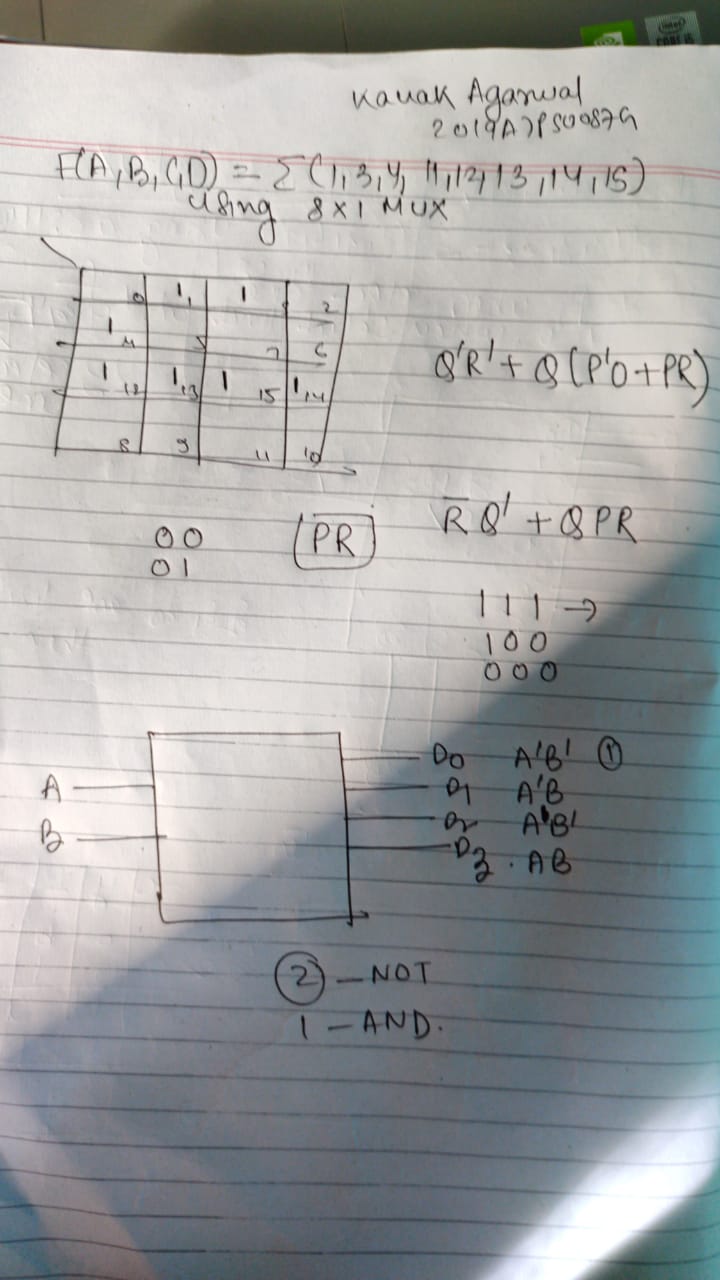 intel
CORE i5
Kanak Agarwal
2019A7PS0087G
F(A,B,C,D) = Σ(1,3,4,11,12,13,14,15)
Using 8x1 MUX
0 1 1 1 2
1 4 5 7 6
1 12 1 13 1 15 1 14
8 9 11 10
Q'R' + Q(P'0+PR)
00 PR R̅Q' + QPR
01
111 →
100
000
D0 A'B' ①
A D1 A'B
D2 A'B'
B D3 . AB
② - NOT
1 - AND.